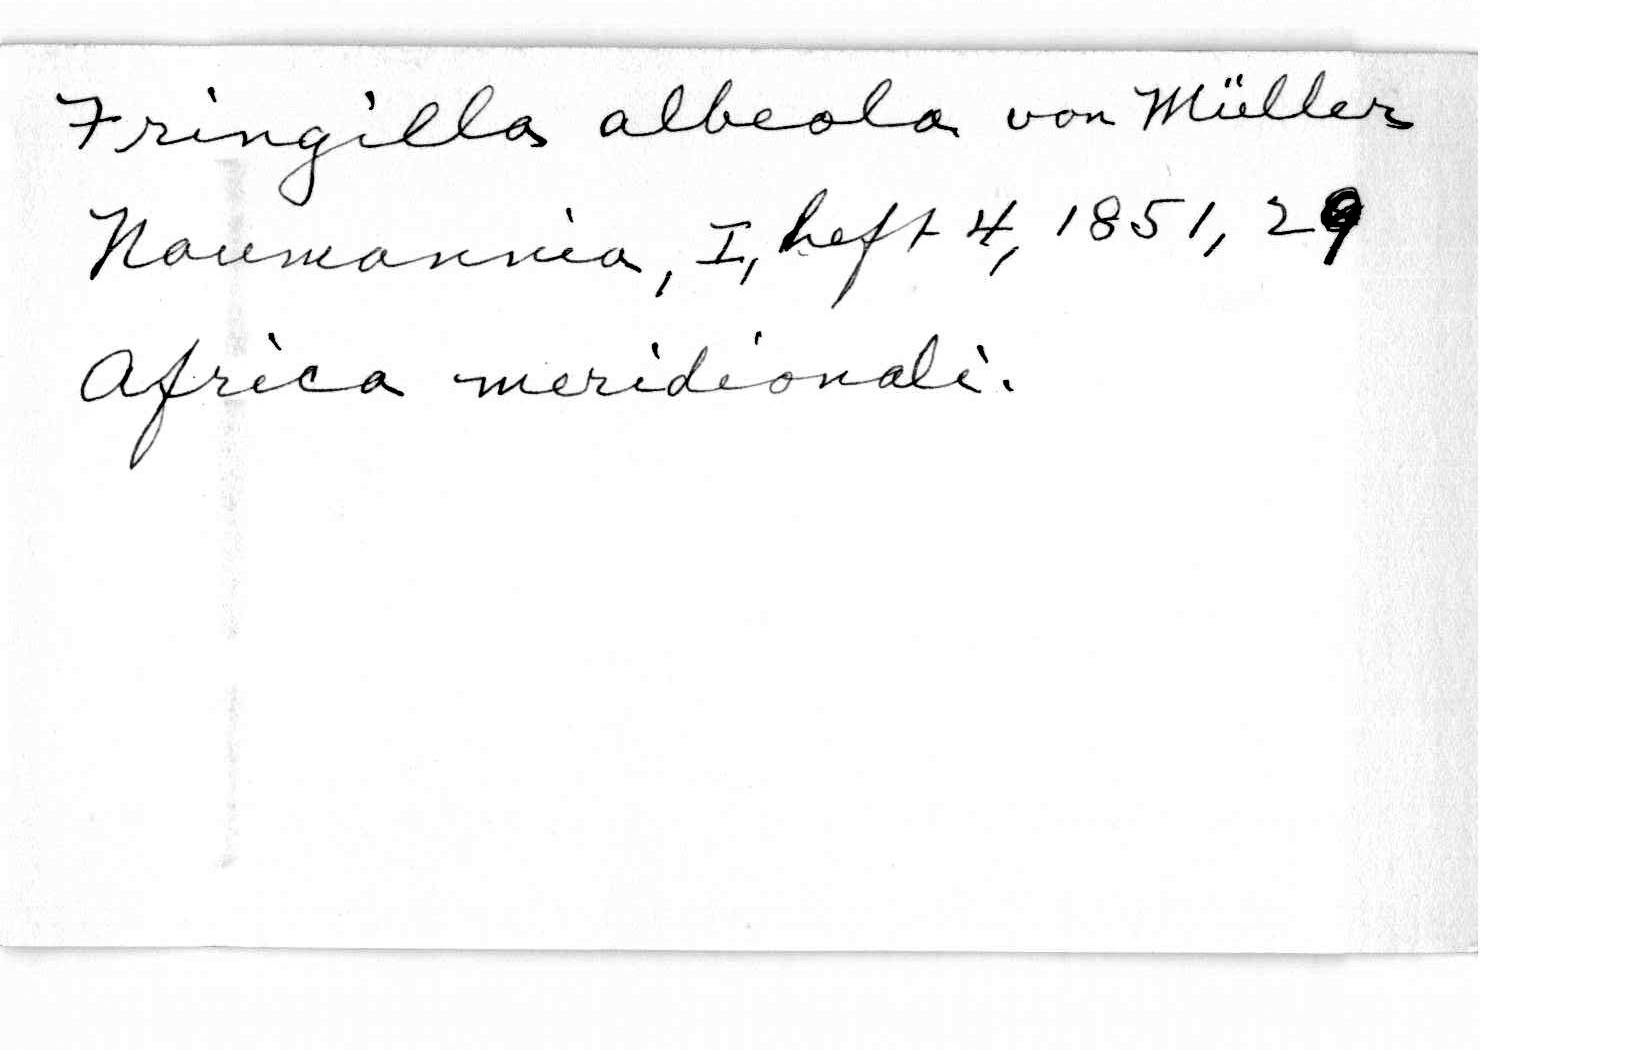 Fringilla albeola von Müller
Naumannia, I, heft 4, 1851, 29
Africa meridionali.